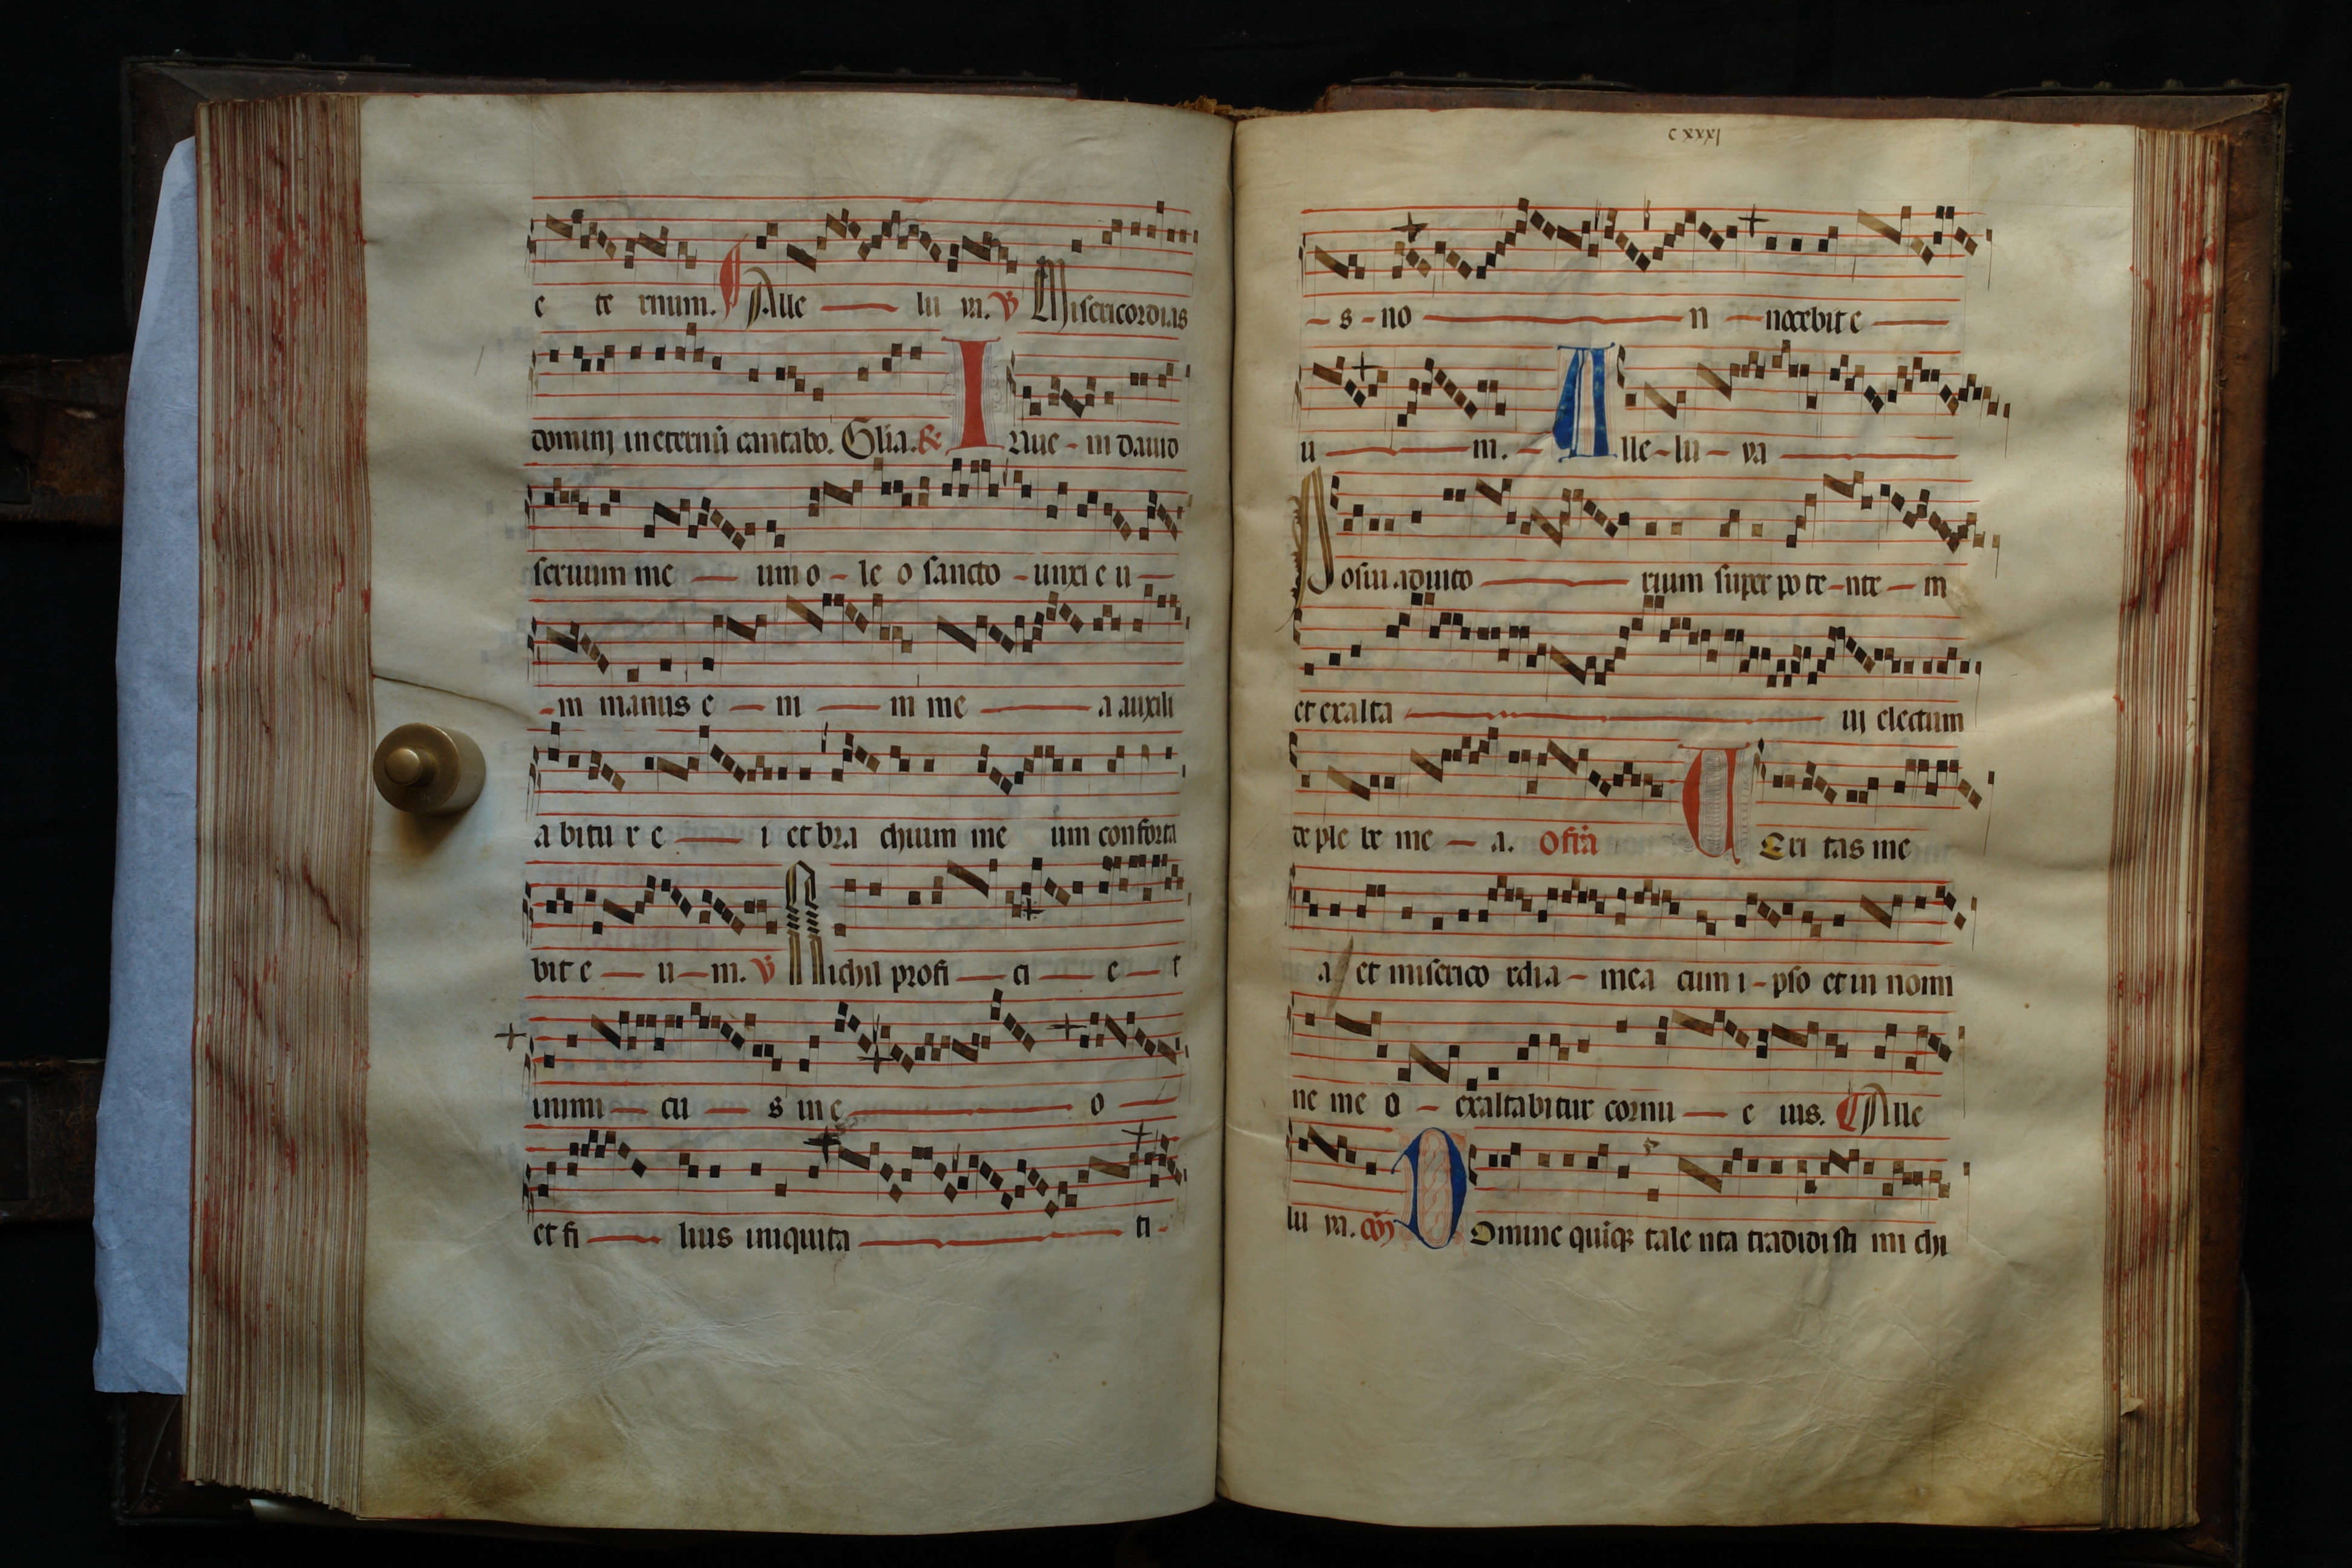 e te rnum. Alle — lu ya. V Misericordias
domini in eternū cantabo. Glīa. R Inue - ni dauid
seruum me — um o - le o sancto - unxi e u —
- m manus e — ni — m me — a auxili
a bitu r e — i et bra chium me um conforta
bit e — u — m. V Nichil profi — ci — e — t
inimi — cu — s in e — o —
et fi — lius iniquita — ti -
cxxxi
— s - no — n — nocebit e —
u — m. - Alle - lu - ya —
Posui adiuto — rium super po te - nte — m
et exalta — ui electum
de ple be me — a. Ofrā Ueri tas me
a et miserico rdia - mea cum i - pso et in nomi
ne me o - exaltabitur cornu — e ius. Alle
lu ya. cōi Domine quiq; tale nta tradidisti mi chi